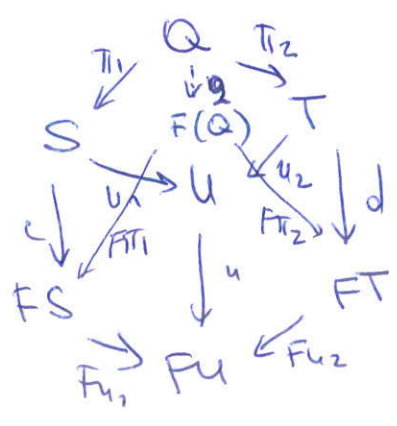 Q
π₁ π₂
q
S F(Q) T
u₁ U u₂
c Fπ₁ Fπ₂ d
FS u FT
Fu₁ FU Fu₂